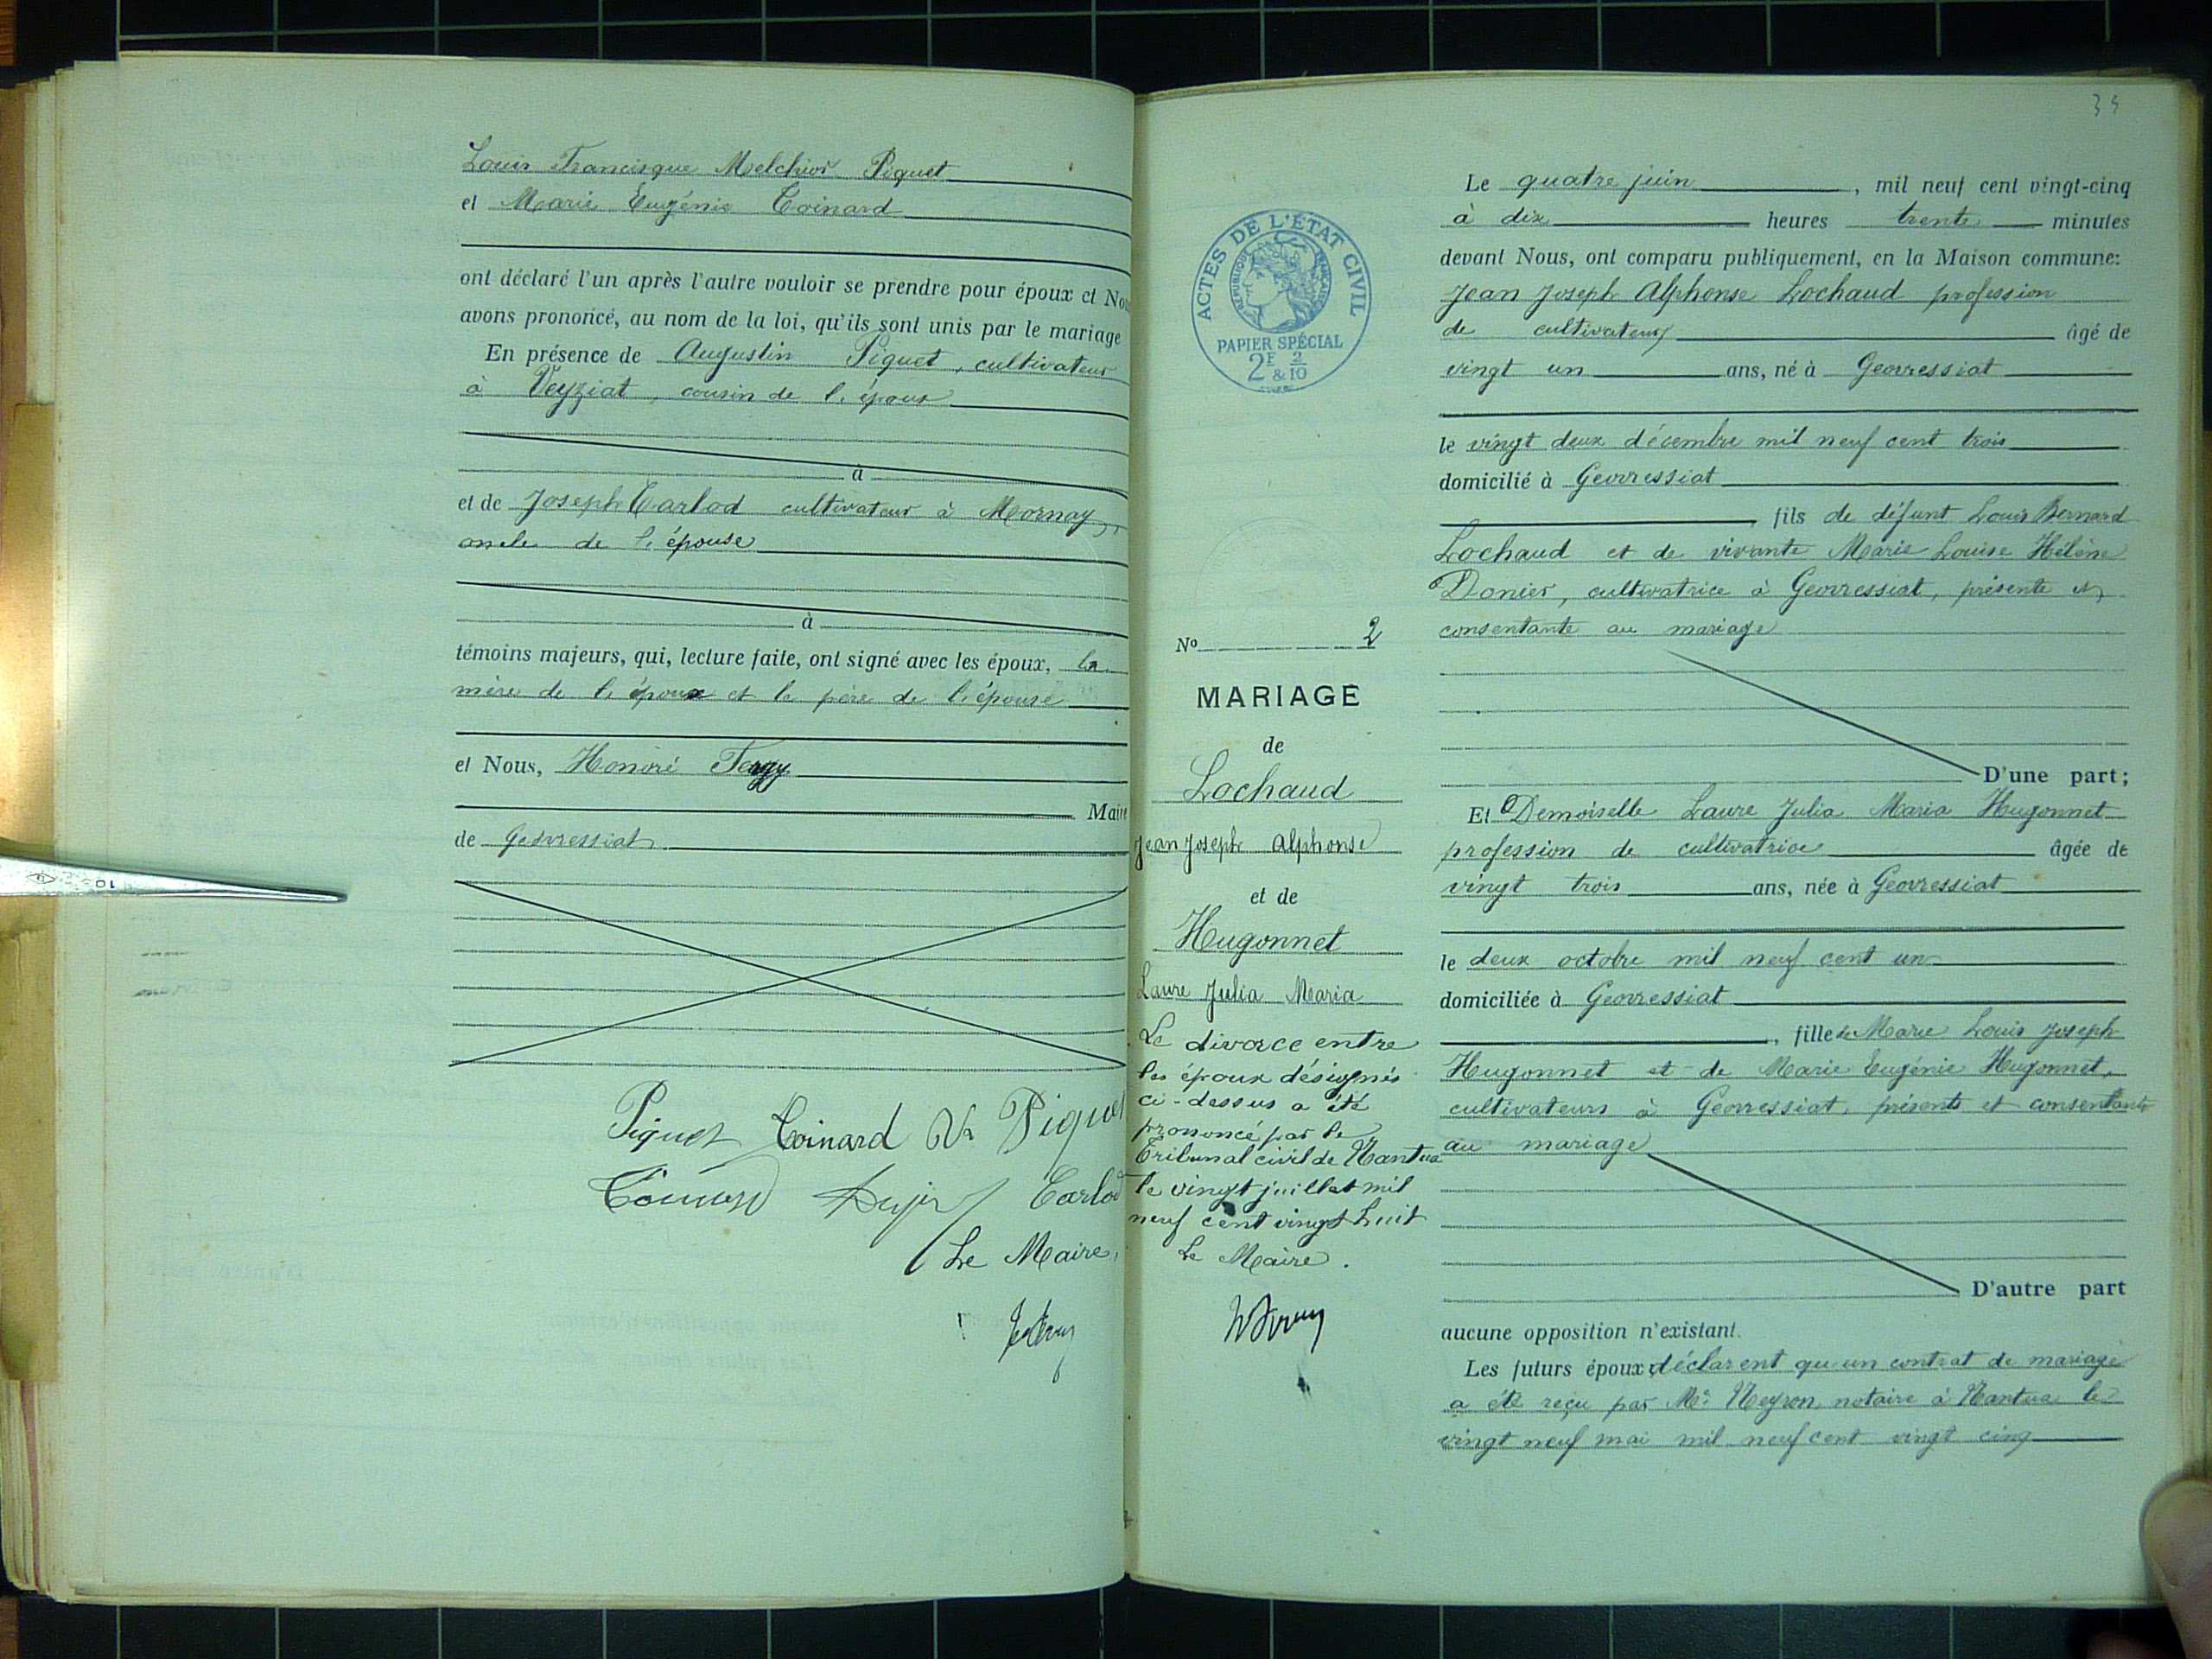 Louis Francisque Melchior Piquet
et Marie Eugénie Coinard
ont déclaré l'un après l'autre vouloir se prendre pour époux et Nou
avons prononcé, au nom de la loi, qu'ils sont unis par le mariage
En présence de Augustin Piquet, cultivateur
à Veyziat, cousin de l'époux
à
et de Joseph Carlod cultivateur à Mornay,
oncle de l'épouse
à
témoins majeurs, qui, lecture faite, ont signé avec les époux, la
mère de l'époux et le père de l'épouse
et Nous, Honoré
Maire
de Geovressiat
Piquet Coinard Ve Piquet
Carlod
Le Maire,
10
34
ACTES DE L'ÉTAT CIVIL
RÉPUBLIQUE FRANÇAISE
PAPIER SPÉCIAL
2F & 2/10
No 2
MARIAGE
de
Lochaud
Jean Joseph Alphonse
et de
Hugonnet
Laure Julia Maria
Le divorce entre
les époux désignés
ci-dessus a été
prononcé par le
Tribunal civil de Nantua
le vingt juillet mil
neuf cent vingt huit
Le Maire.
Le quatre juin, mil neuf cent vingt-cinq
à dix heures trente minutes
devant Nous, ont comparu publiquement, en la Maison commune:
Jean Joseph Alphonse Lochaud profession
de cultivateur âgé de
vingt un ans, né à Geovressiat
le vingt deux décembre mil neuf cent trois
domicilié à Geovressiat
, fils de défunt Louis Bernard
Lochaud et de vivante Marie Louise Hélène
Donier, cultivatrice à Geovressiat, présente et
consentante au mariage
D'une part;
Et Demoiselle Laure Julia Maria Hugonnet
profession de cultivatrice âgée de
vingt trois ans, née à Geovressiat
le deux octobre mil neuf cent un
domiciliée à Geovressiat
, fille de Marie Louis Joseph
Hugonnet et de Marie Eugénie Hugonnet,
cultivateurs à Geovressiat, présents et consentants
au mariage
D'autre part
aucune opposition n'existant.
Les futurs époux déclarent qu'un contrat de mariage
a été reçu par Me Neyron notaire à Nantua le
vingt neuf mai mil neuf cent vingt cinq